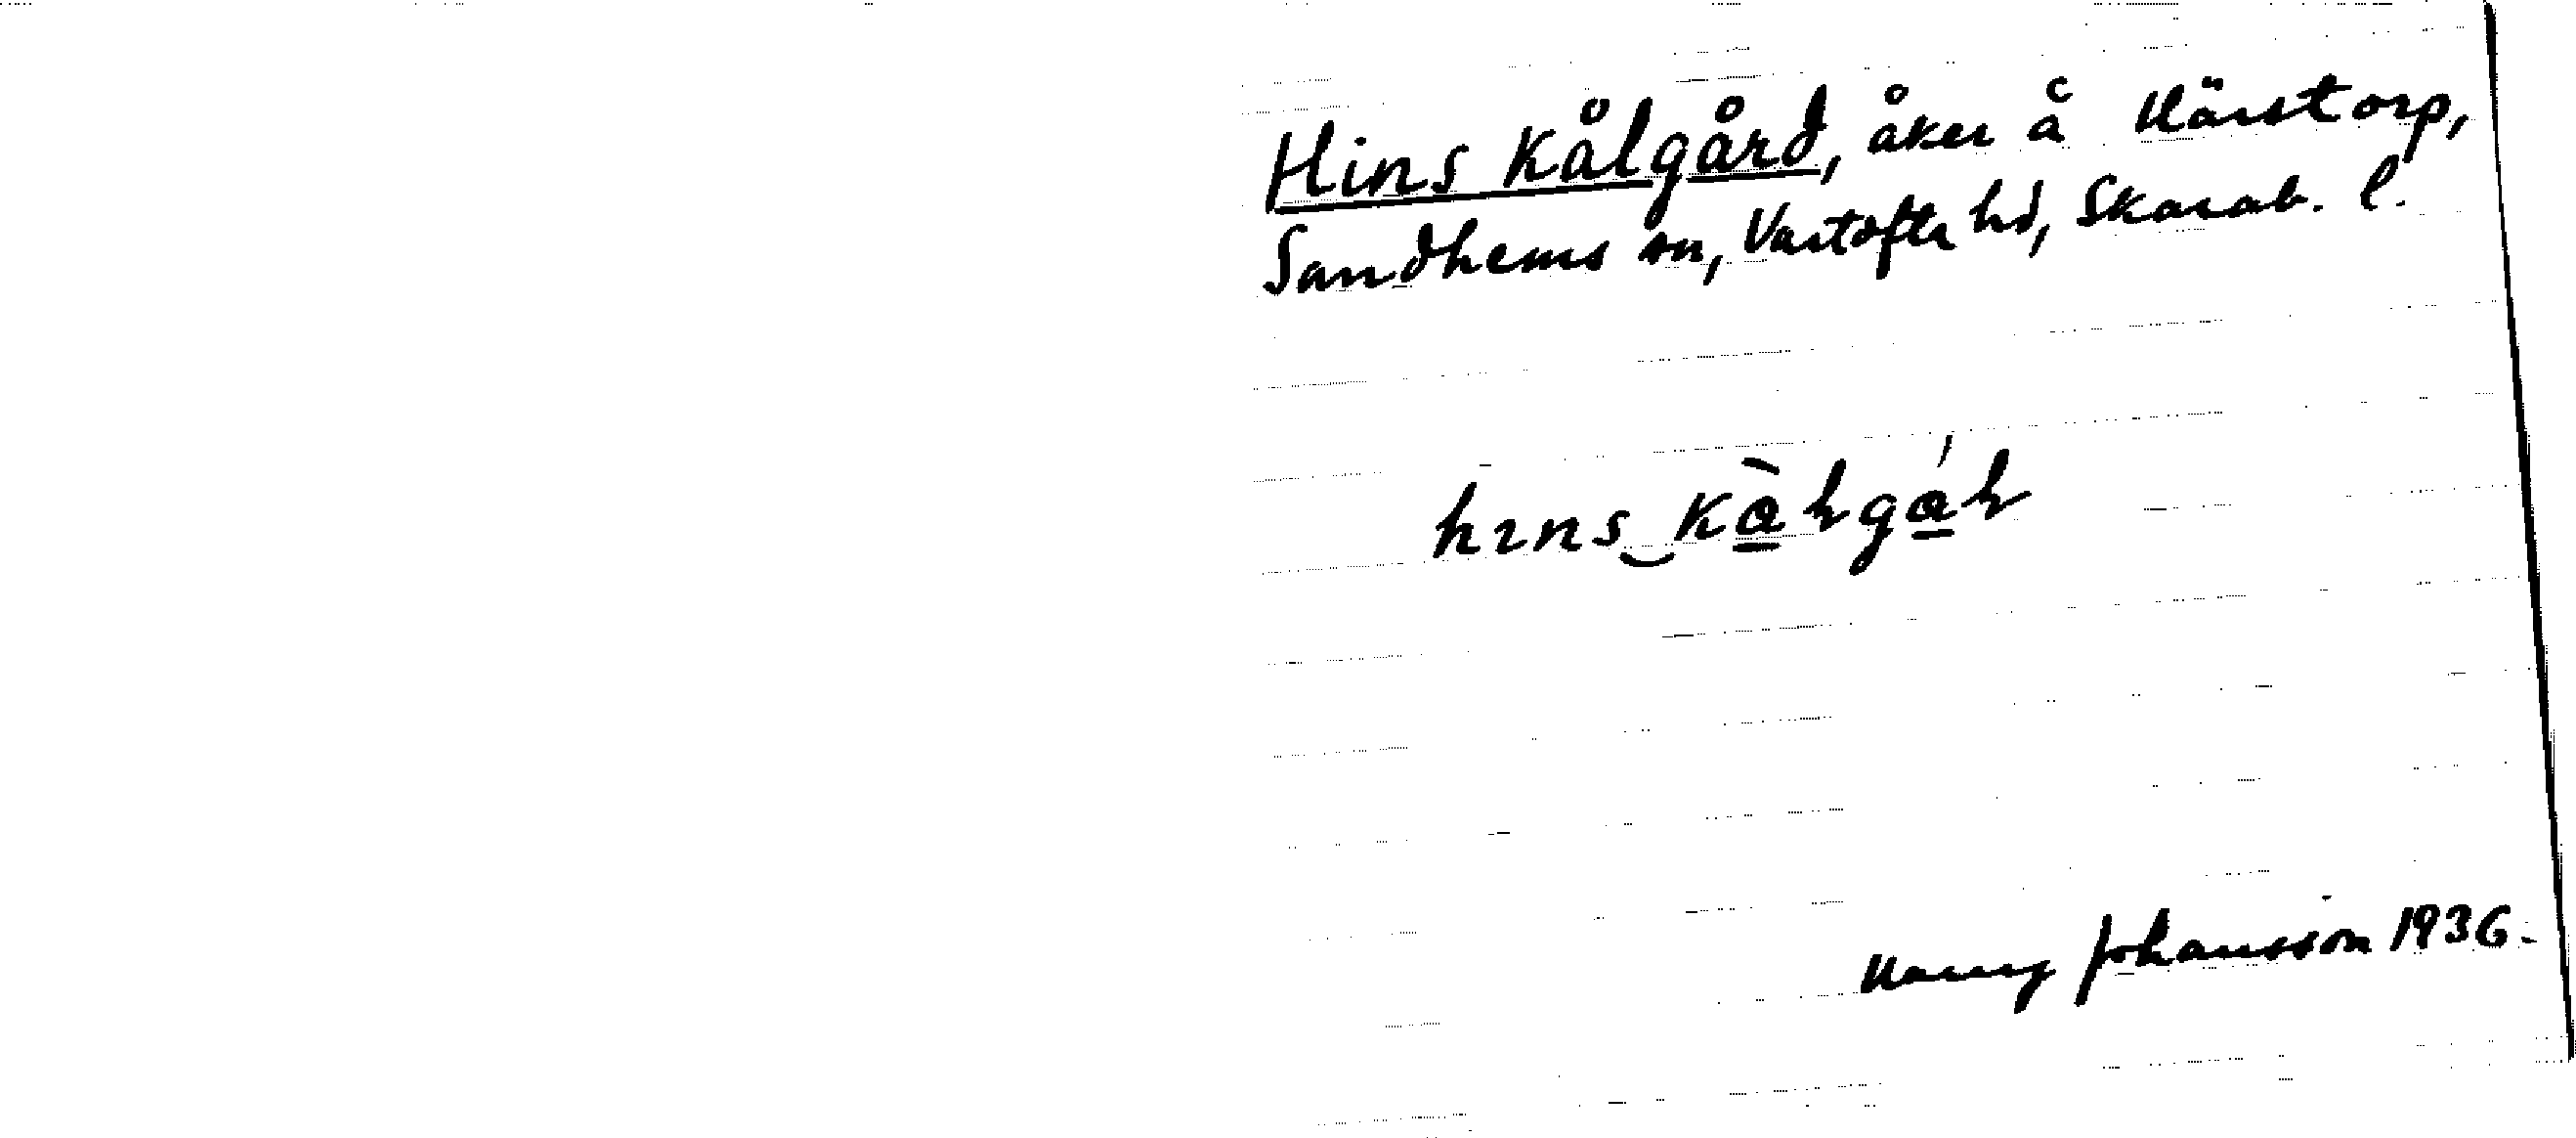 Hins Kålgård, åker å Härstorp,
Sandhems sn, Vartofta hd, Skarab. l.
hıns‿kàlgál
Harry Johansson 1936.